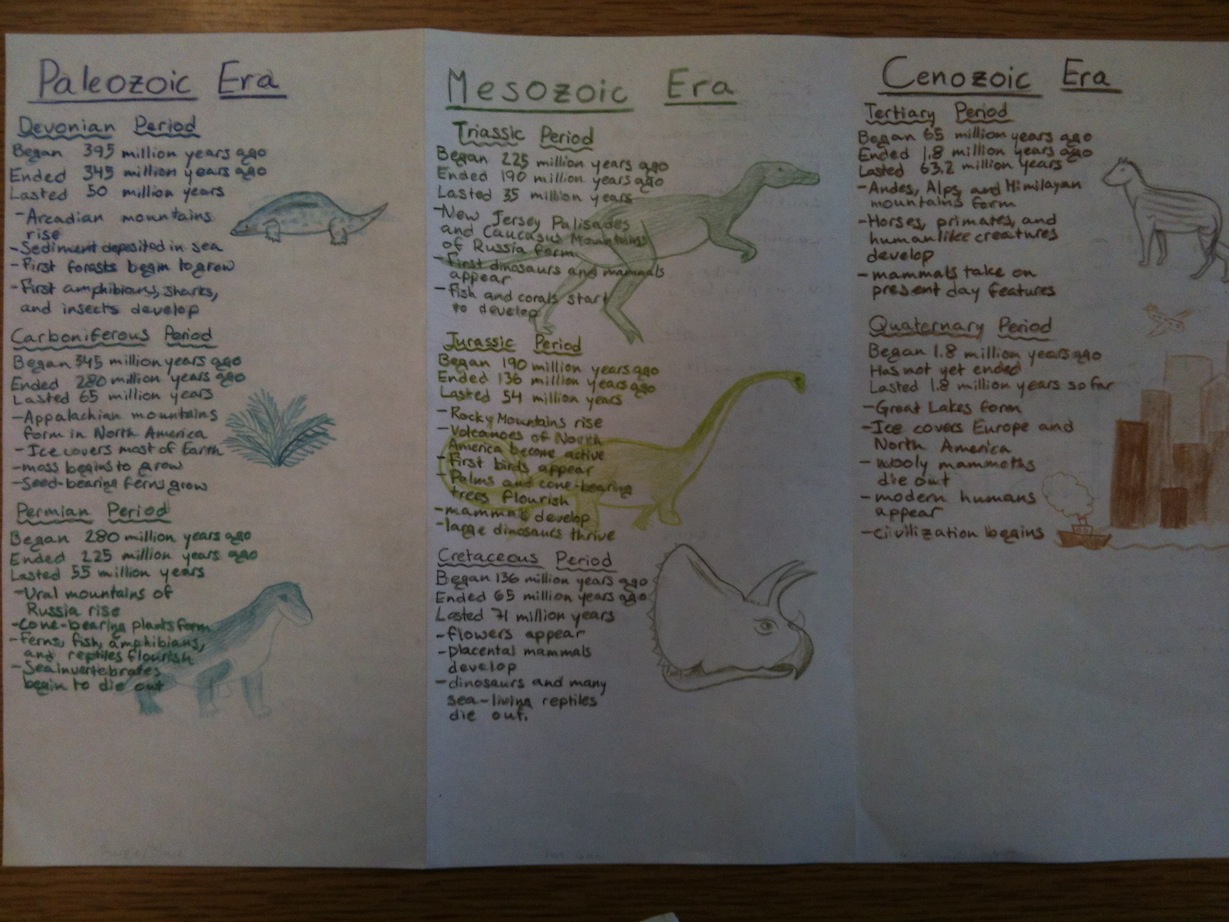 Paleozoic Era
Devonian Period
Began 395 million years ago
Ended 345 million years ago
Lasted 50 million years
-Arcadian mountains
rise
-Sediment deposited in sea
-First forests begin to grow
-First amphibians, sharks,
and insects develop
Carboniferous Period
Began 345 million years ago
Ended 280 million years ago
Lasted 65 million years
-Appalachian mountains
form in North America
-Ice covers most of Earth
-moss begins to grow
-Seed-bearing ferns grow
Permian Period
Began 280 million years ago
Ended 225 million years ago
Lasted 55 million years
-Ural mountains of
Russia rise
-Cone-bearing plants form
-Ferns, fish, amphibians,
and reptiles flourish
-Sea invertebrates
begin to die out
Mesozoic Era
Triassic Period
Began 225 million years ago
Ended 190 million years ago
Lasted 35 million years
-New Jersey Palisades
and Caucasus Mountains
of Russia form
-First dinosaurs and mammals
appear
-fish and corals start
to develop
Jurassic Period
Began 190 million years ago
Ended 136 million years ago
Lasted 54 million years
-Rocky Mountains rise
-Volcanoes of North
America become active
-First birds appear
-Palms and cone-bearing
trees flourish
-mammals develop
-large dinosaurs thrive
Cretaceous Period
Began 136 million years ago
Ended 65 million years ago
Lasted 71 million years
-flowers appear
-placental mammals
develop
-dinosaurs and many
sea-living reptiles
die out.
Cenozoic Era
Tertiary Period
Began 65 million years ago
Ended 1.8 million years ago
Lasted 63.2 million years
-Andes, Alps, and Himilayan
mountains form
-Horses, primates, and
humanlike creatures
develop
-mammals take on
present day features
Quaternary Period
Began 1.8 million years ago
Has not yet ended
Lasted 1.8 million years so far
-Great Lakes form
-Ice covers Europe and
North America
-wooly mammoths
die out
-modern humans
appear
-civilization begins